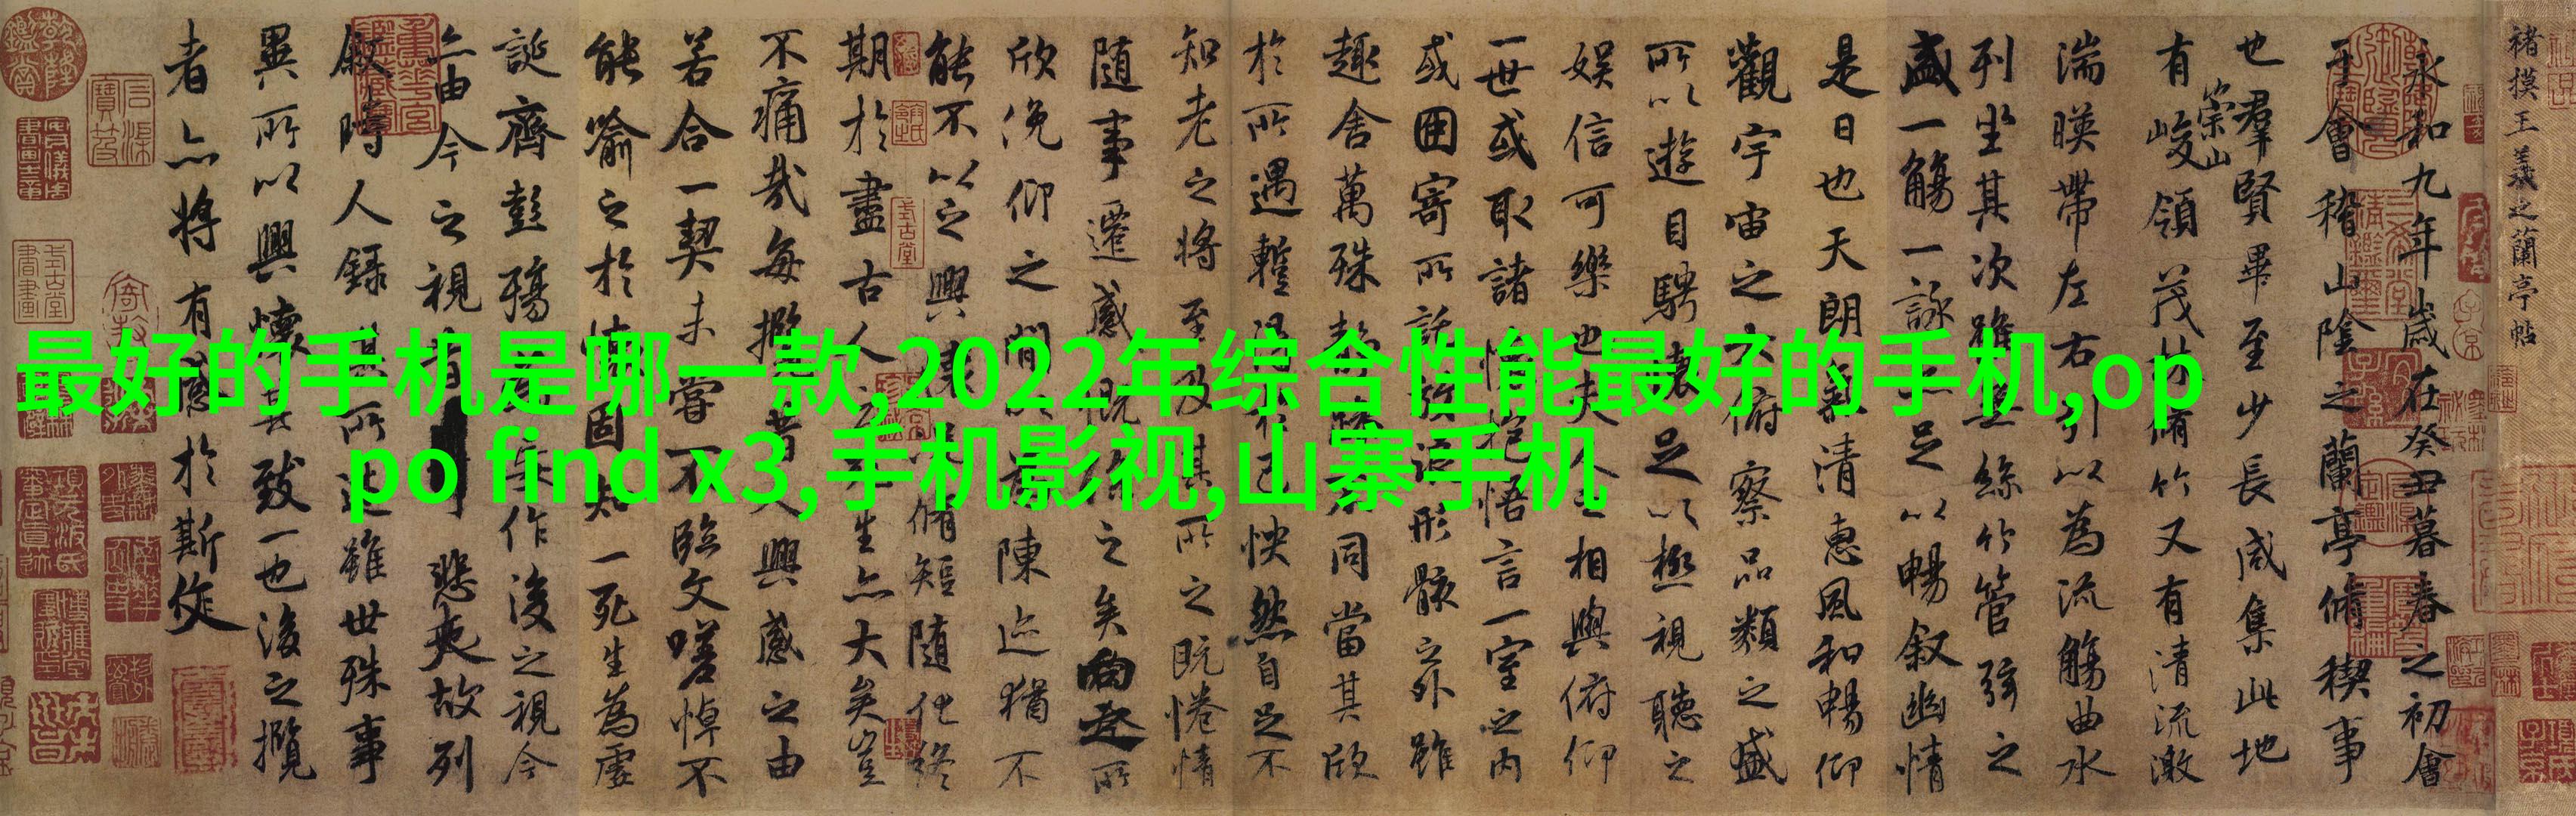 最好的手机是哪一款,2022年综合性能最好的手机,op
po find x3,手机影视,山寨手机
褚摸王羲之蘭亭帖
永和九年歲在癸丑暮春之初會
于會稽山陰之蘭亭脩稧事
也羣賢畢至少長咸集此地
有崇山峻領茂林脩竹又有清流激
湍暎帶左右引以為流觴曲水
列坐其次雖無絲竹管弦之
盛一觴一詠亦足以暢叙幽情
是日也天朗氣清惠風和暢仰
觀宇宙之大俯察品類之盛
所以遊目騁懷足以極視聽之
娛信可樂也夫人之相與俯仰
一世或取諸懷抱悟言一室之內
或因寄所託放浪形骸之外雖
趣舍萬殊靜躁不同當其欣
於所遇蹔得於己怏然自足不
知老之將至及其所之既惓情
隨事遷感慨係之矣向之所
欣俛仰之間以為陳迹猶不
能不以之興懷況脩短隨化終
期於盡古人云死生亦大矣豈
不痛哉每攬昔人興感之由
若合一契未嘗不臨文嗟悼不
能喻之於懷固知一死生為虛
誕齊彭殤為妄作後之視今
亦由今之視昔悲夫故列
叙時人錄其所述雖世殊事
異所以興懷其致一也後之攬
者亦將有感於斯文